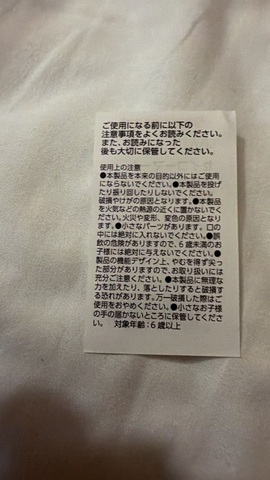 ご使用になる前に以下の
注意事項をよくお読みください。
また、お読みになった
後も大切に保管してください。
使用上の注意
●本製品を本来の目的以外にはご使用
にならないでください。●本製品を投げ
たり振り回したりしないでください。
破損やけがの原因となります。●本製品
を火気などの熱源の近くに置かないでく
ださい。火災や変形、変色の原因となりま
す。●小さなパーツがあります。口の
中には絶対に入れないでください。●誤
飲の危険がありますので、6歳未満のお
子様には絶対に与えないでください。●
製品の機能デザイン上、やむを得ず尖っ
た部分がありますので、お取り扱いには
充分ご注意ください。●本製品に無理な
力を加えたり、落としたりすると破損す
る恐れがあります。万一破損した際はご
使用をおやめください。●小さなお子様
の手の届かないところに保管してくださ
い。 対象年齢:6歳以上